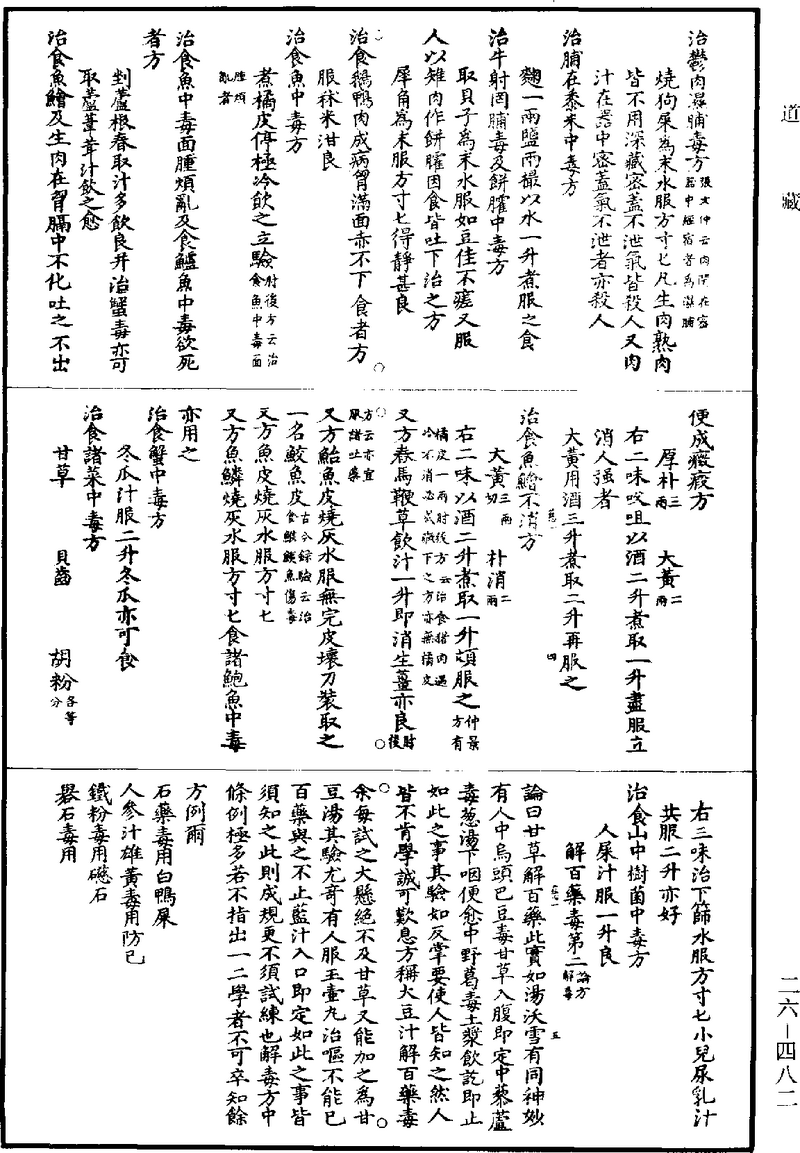 道藏
治鬱肉濕脯毒方張文仲云肉閉在密器中經宿者為濕脯
燒狗屎為末水服方寸匕凡生肉熟肉
皆不用深藏密蓋不泄氣皆殺人又肉
汁在器中密蓋氣不泄者亦殺人
治脯在黍米中毒方
麴一兩鹽兩撮以水一升煮服之食
治牛射罔脯毒及餅臛中毒方
取貝子為末水服如豆佳不瘥又服
人以雉肉作餅臛因食皆吐下治之方
犀角為末服方寸匕得靜甚良
治食鵝鴨肉成病胷滿面赤不下食者方
服秫米泔良
治食魚中毒方
煮橘皮停極冷飲之立驗肘後方云治食魚中毒面腫煩亂者
治食魚中毒面腫煩亂及食鱸魚中毒欲死
者方
剉蘆根舂取汁多飲良并治蟹毒亦可
取蘆葦茸汁飲之愈
治食魚鱠及生肉在胷膈中不化吐之不出
便成癥瘕方
厚朴三兩 大黃二兩
右二味㕮咀以酒二升煮取一升盡服立
消人强者
大黃用酒三升煮取二升再服之
治食魚鱠不消方
大黃三兩切 朴消二兩
右二味以酒二升煮取一升頓服之仲景方有
橘皮一兩肘後方云治食猪肉遇冷不消必成癥下之方亦無橘皮
又方舂馬鞭草飲汁一升即消生薑亦良肘後
方云亦宜服諸吐藥
又方鮐魚皮燒灰水服無完皮壞刀裝取之
一名鮫魚皮古今錄驗云治食鯸鮧魚傷毒
又方魚皮燒灰水服方寸匕
又方魚鱗燒灰水服方寸匕食諸鮑魚中毒
亦用之
治食蟹中毒方
冬瓜汁服二升冬瓜亦可食
治食諸菜中毒方
甘草 貝齒 胡粉各等分
右三味治下篩水服方寸匕小兒尿乳汁
共服二升亦好
治食山中樹菌中毒方
人屎汁服一升良
解百藥毒第二論方解毒
論曰甘草解百藥此實如湯沃雪有同神妙
有人中烏頭巴豆毒甘草入腹即定中藜蘆
毒葱湯下咽便愈中野葛毒土漿飲訖即止
如此之事其驗如反掌要使人皆知之然人
皆不肯學誠可歎息方稱大豆汁解百藥毒
余每試之大懸絕不及甘草又能加之為甘
豆湯其驗尤奇有人服玉壺丸治嘔不能已
百藥與之不止藍汁入口即定如此之事皆
須知之此則成規更不須試練也解毒方中
條例極多若不指出一二學者不可卒知餘
方例爾
石藥毒用白鴨屎
人參汁雄黃毒用防己
鐵粉毒用礠石
礜石毒用
二六—四八二